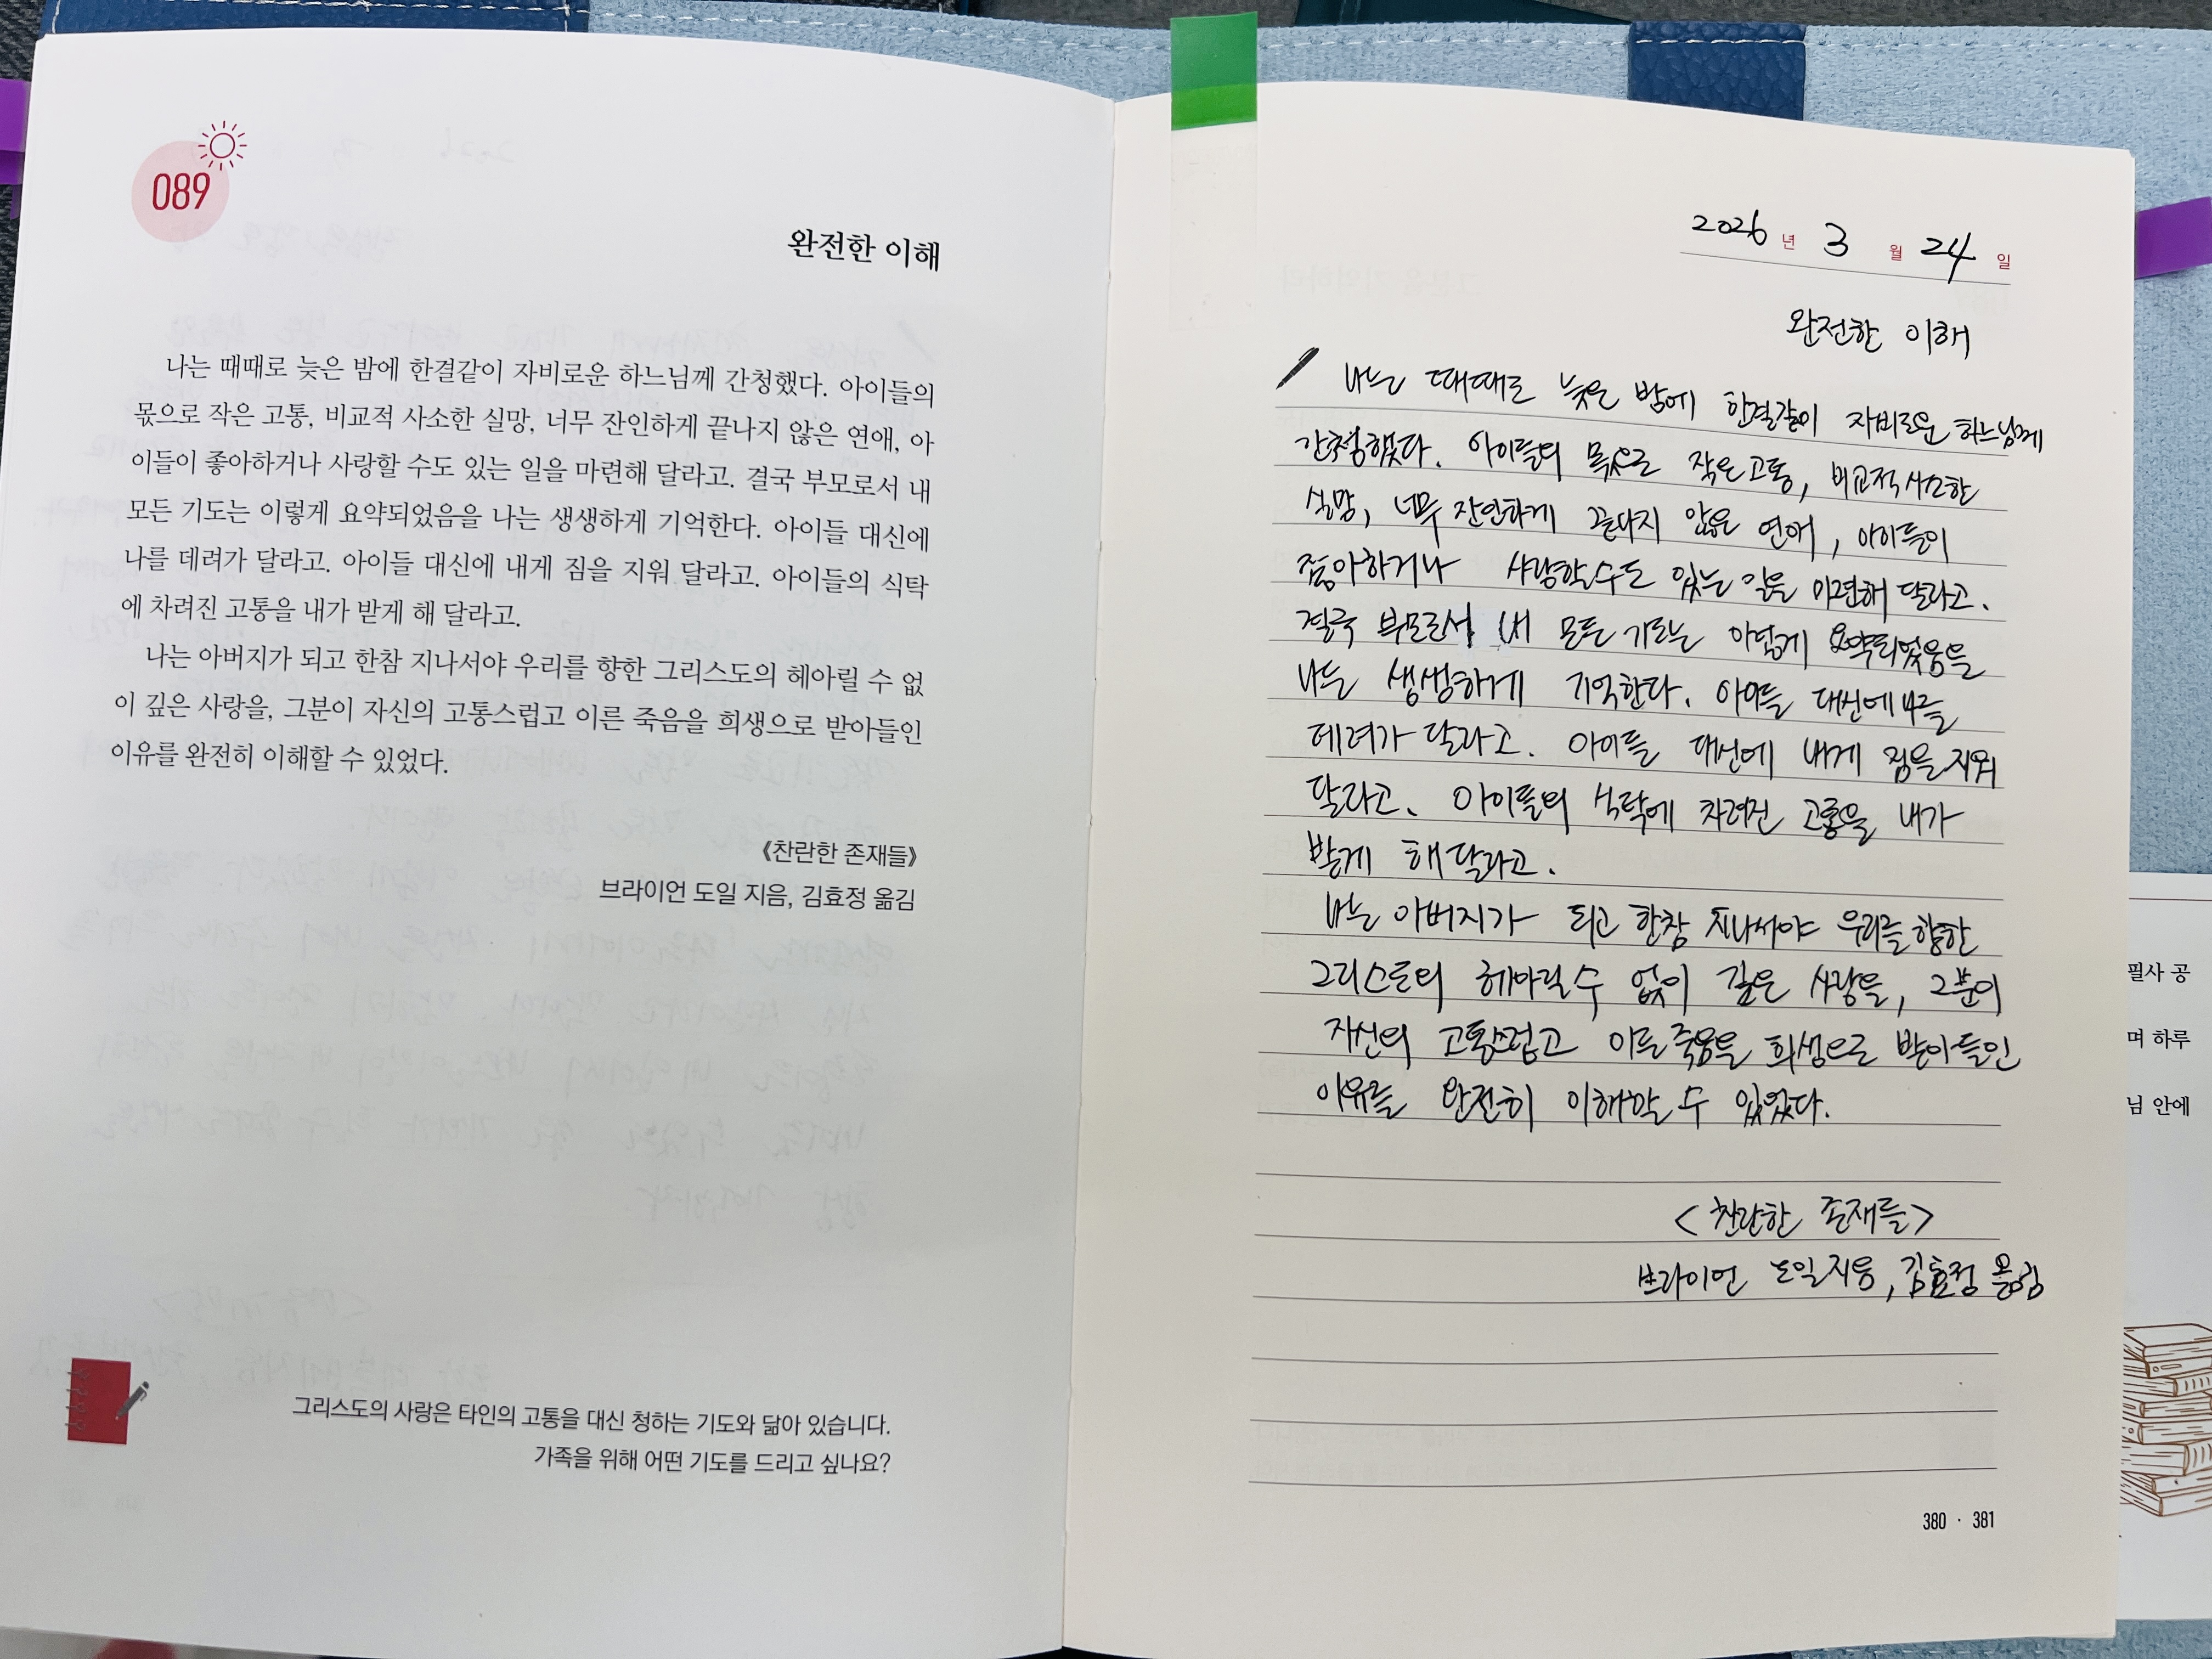 089
완전한 이해
나는 때때로 늦은 밤에 한결같이 자비로운 하느님께 간청했다. 아이들의
몫으로 작은 고통, 비교적 사소한 실망, 너무 잔인하게 끝나지 않은 연애, 아
이들이 좋아하거나 사랑할 수도 있는 일을 마련해 달라고. 결국 부모로서 내
모든 기도는 이렇게 요약되었음을 나는 생생하게 기억한다. 아이들 대신에
나를 데려가 달라고. 아이들 대신에 내게 짐을 지워 달라고. 아이들의 식탁
에 차려진 고통을 내가 받게 해 달라고.
나는 아버지가 되고 한참 지나서야 우리를 향한 그리스도의 헤아릴 수 없
이 깊은 사랑을, 그분이 자신의 고통스럽고 이른 죽음을 희생으로 받아들인
이유를 완전히 이해할 수 있었다.
《찬란한 존재들》
브라이언 도일 지음, 김효정 옮김
그리스도의 사랑은 타인의 고통을 대신 청하는 기도와 닮아 있습니다.
가족을 위해 어떤 기도를 드리고 싶나요?
2026 년 3 월 24 일
완전한 이해
나는 때때로 늦은 밤에 한결같이 자비로운 하느님께
간청했다. 아이들의 몫으로 작은 고통, 비교적 사소한
실망, 너무 잔인하게 끝나지 않은 연애, 아이들이
좋아하거나 사랑할 수도 있는 일을 마련해 달라고.
결국 부모로서 내 모든 기도는 이렇게 요약되었음을
나는 생생하게 기억한다. 아이들 대신에 나를
데려가 달라고. 아이들 대신에 내게 짐을 지워
달라고. 아이들의 식탁에 차려진 고통을 내가
받게 해 달라고.
나는 아버지가 되고 한참 지나서야 우리를 향한
그리스도의 헤아릴 수 없이 깊은 사랑을, 그분이
자신의 고통스럽고 이른 죽음을 희생으로 받아들인
이유를 완전히 이해할 수 있었다.
<찬란한 존재들>
브라이언 도일 지음, 김효정 옮김
380 · 381
필사 공
며 하루
님 안에